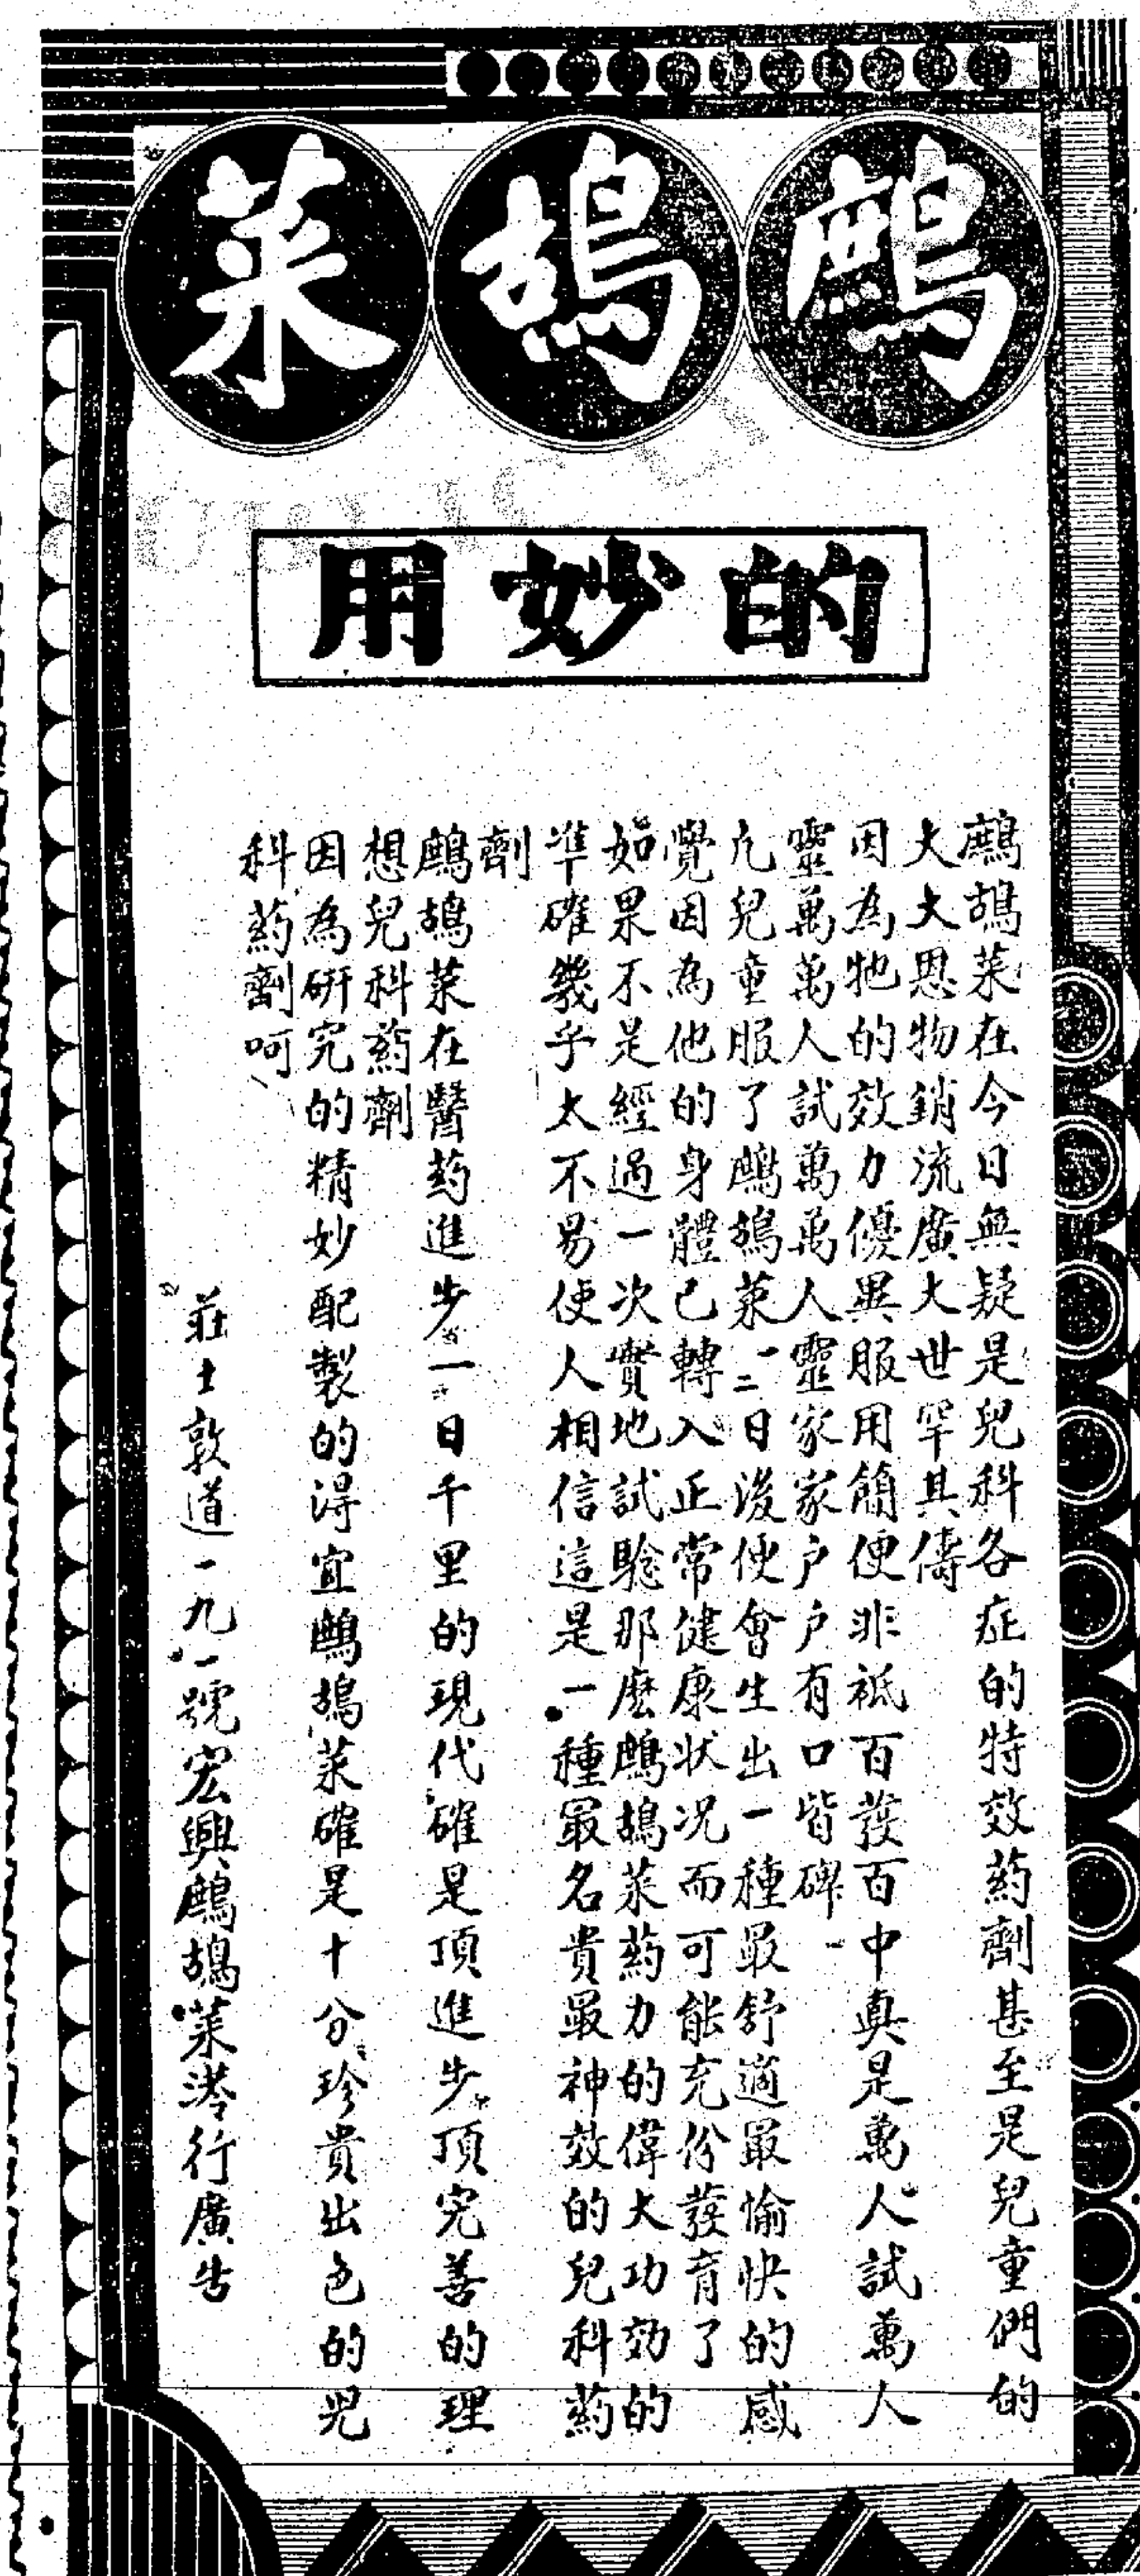 鷓鴣菜
的妙用
鷓鴣菜在今日無疑是兒科各症的特效葯劑甚至是兒童們的
大大恩物銷流廣大世罕其儔
因為牠的效力優異服用簡便非祗百發百中真是萬人試萬人
靈萬萬人試萬萬人靈家家户户有口皆碑
凡兒童服了鷓鴣菜一二日後便會生出一種最舒適最愉快的感
覺因為他的身體已轉入正常健康狀况而可能充份發育了
如果不是經過一次實地試驗那麽鷓鴣菜葯力的偉大功効的
準確幾乎太不易使人相信這是一種最名貴最神效的兒科葯
劑
鷓鴣菜在醫葯進步一日千里的現代確是頂進步頂完善的理
想兒科葯劑
因為研究的精妙配製的淂宜鷓鴣菜確是十分珍貴出色的児
科葯劑呵
莊士敦道一九一號宏興鷓鴣菜港行廣告